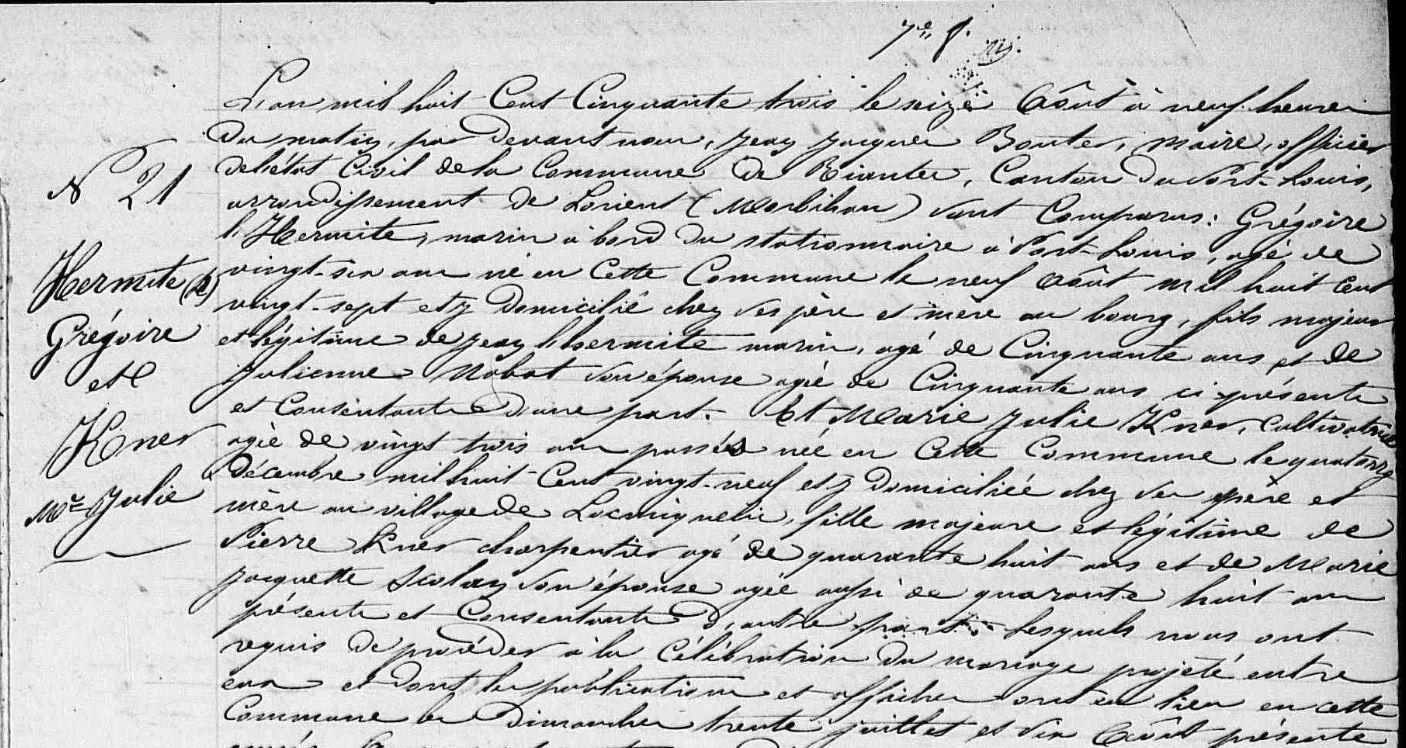 7e f.
N 21
Hermite (l')
Grégoire
et
Kner
Mie Julie
L'an mil huit Cent Cinquante trois le seize Août à neuf heures
du matin, par devant nous, Jean Jacques Bouter, maire, officier
de l'état Civil de la Commune de Riantec, Canton du Port-Louis,
arrondissement de Lorient (Morbihan) sont Comparus: Grégoire
l'Hermite, marin à bord du stationnaire à Port-Louis, agé de
vingt-six ans né en Cette Commune le neuf Août mil huit Cent
vingt-sept et y Domicilié chez ses père et mère au bourg, fils majeur
et légitime de Jean l'hermite marin, agé de Cinquante ans et de
Julienne Nobot son épouse agée de Cinquante ans ci présents
et Consentants d'une part. Et Marie Julie Kner, Cultivatrice
agée de vingt trois ans passés née en Cette Commune le quatorze
décembre mil huit Cent vingt-neuf et y domiciliée chez ses père et
mère au village de Locmiquelic, fille majeure et légitime de
Pierre Kner charpentier agé de quarante huit ans et de Marie
Jacquette son épouse agée aussi de quarante huit ans
présents et Consentants d'autre part. Lesquels nous ont
requis de procéder à la Célébration du mariage projeté entre
eux et dont les publications et affiches ont eu lieu en cette
Commune les Dimanches trente juillet et six Août présente